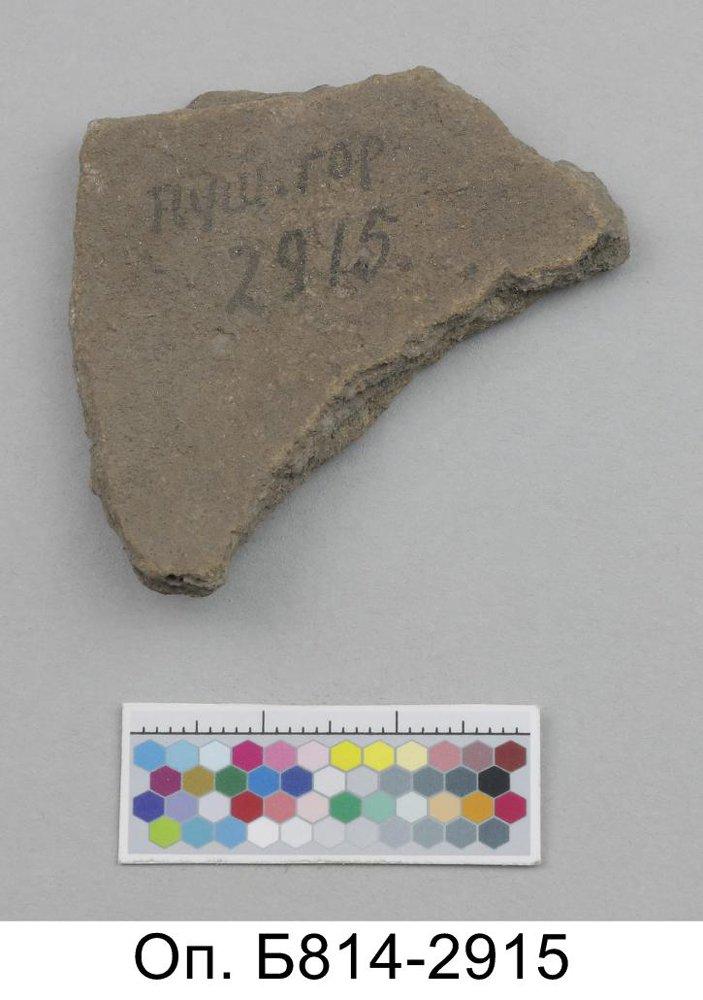 пуш.гор
2915
Оп. Б814-2915